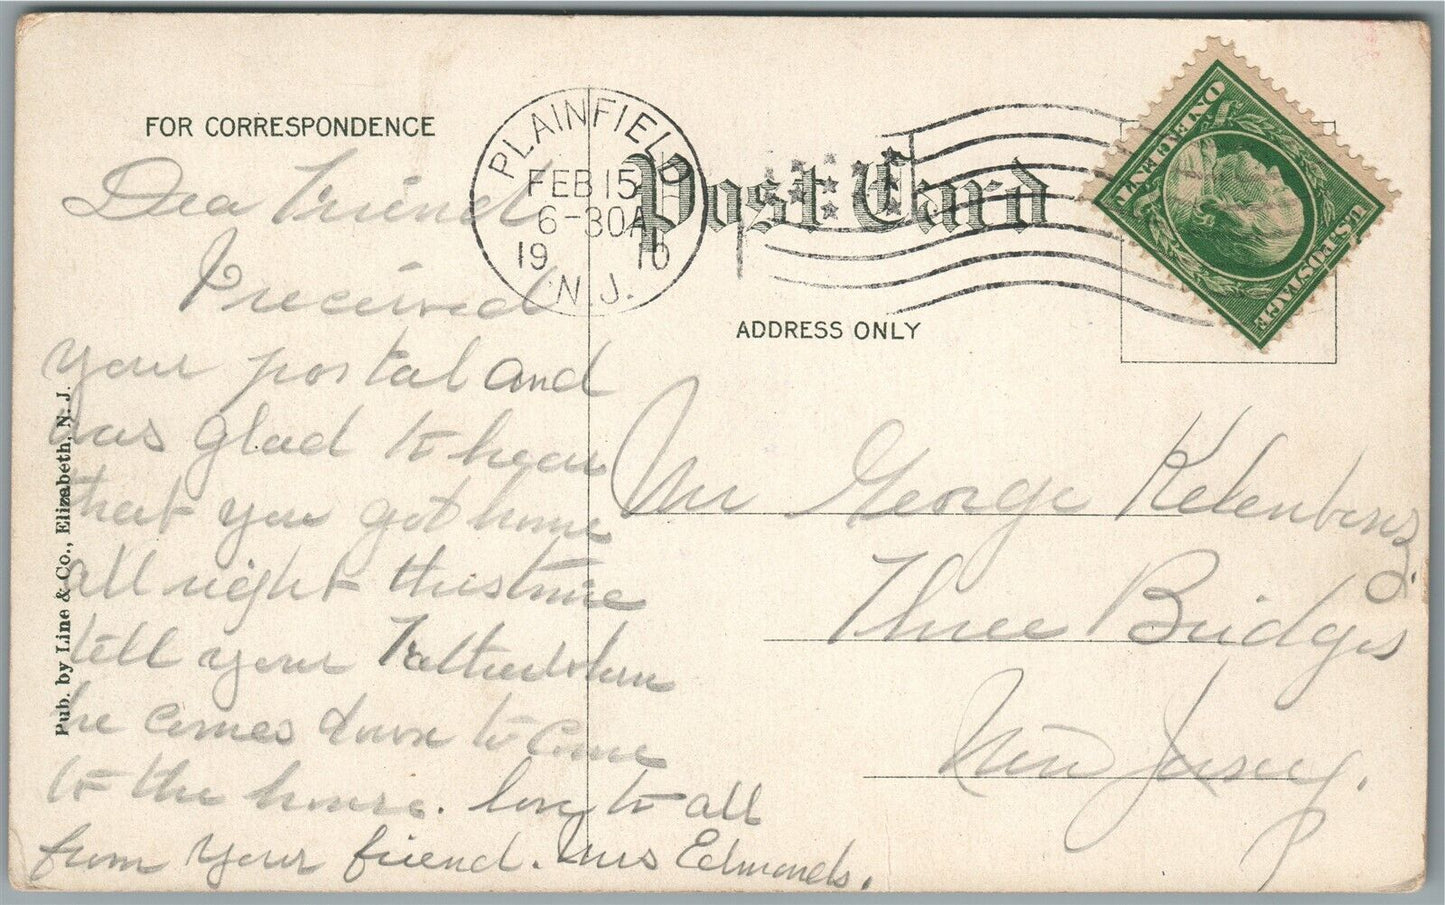 FOR CORRESPONDENCE
PLAINFIELD
FEB 15
6-30A
19 10
N.J.
Post Card
ONE CENT
U.S. POSTAGE
ADDRESS ONLY
Dea Friend
I received
your postal and
was glad to hear
that you got home
all right this time
tell your Father when
he comes down to come
to the house. love to all
from your friend. Mrs Edmonds.
Mr George
Three Bridges
New Jersey.
Pub. by Line & Co., Elizabeth, N. J.